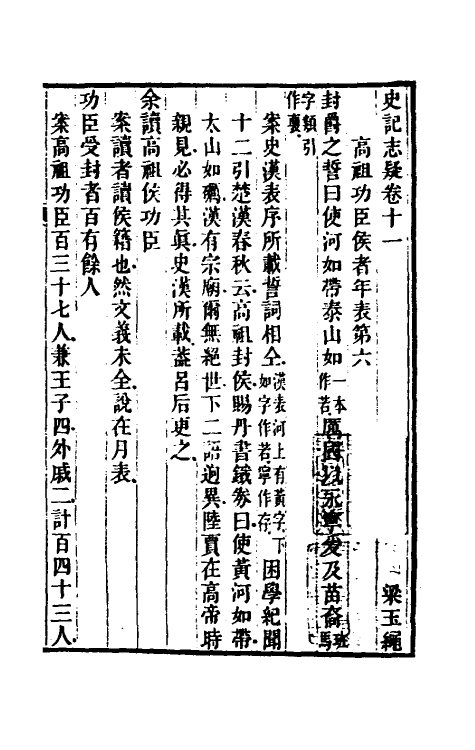 史記志疑卷十一
梁玉繩
高祖功臣侯者年表第六
封爵之誓曰使河如帶泰山如一本作若厲國以永寧爰及苗裔班馬
字類引作褏
案史漢表序所載誓詞相仝漢表河上有黃字下如字作若寧作存困學紀聞
十二引楚漢春秋云高祖封侯賜丹書鐵券曰使黃河如帶
太山如礪漢有宗廟爾無絕世下二語迥異陸賈在高帝時
親見必得其真史漢所載蓋呂后更之
余讀高祖侯功臣
案讀者讀侯籍也然文義未全說在月表
功臣受封者百有餘人
案高祖功臣百三十七人兼王子四外戚二計百四十三人